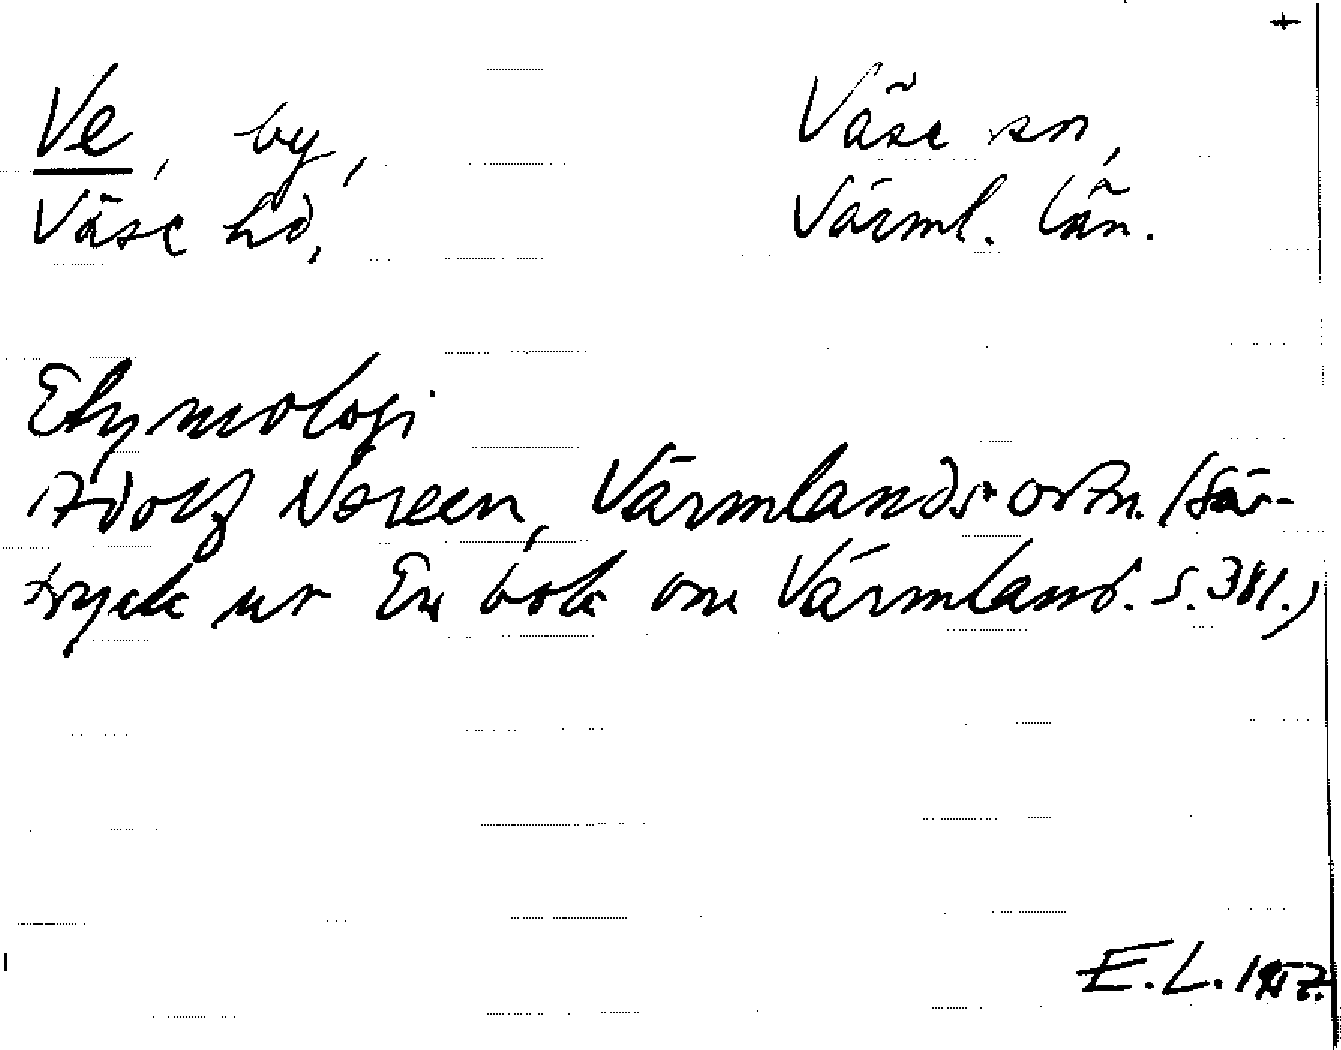 Ve, by,
Väse hd,
Väse sn,
Värml. län.
Etymologi
Adolf Noreen, Värmlands ortn. (Sär-
tryck ur En bok om Värmland. S. 381.)
E.L. 1957.